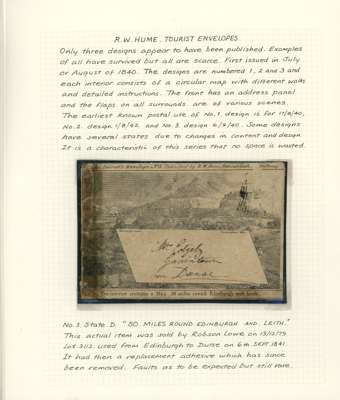 R.W. HUME. TOURIST ENVELOPES.
Only three designs appear to have been published. Examples
of all have survived but all are scarce. First issued in July
or August of 1840. The designs are numbered 1, 2 and 3 and
each interior consists of a circular map with different walks
and detailed instructions. The front has an address panel
and the flaps on all surrounds are of various scenes.
The earliest known postal use of No.1. design is for
No.2. design and No.3. design Some designs
have several states due to changes in content and design
It is a characteristic of this series that no space is wasted.
Mr
No.3. State D. "50. MILES ROUND EDINBURGH AND LEITH."
This actual item was sold by Robson Lowe on 13/12/79
Lot 3112. used from Edinburgh to Dunse on 6th SEPT. 1841.
It had then a replacement adhesive which has since
been removed. Faults as to be expected but still rare.